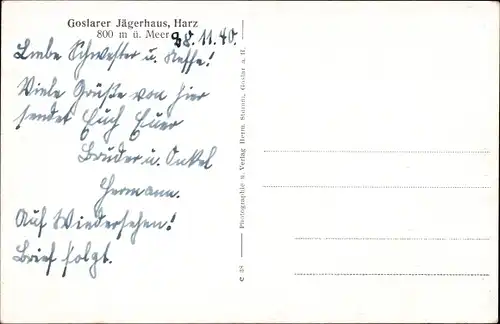 Goslarer Jägerhaus, Harz
800 m ü. Meer
28.11.40.
Liebe Schwester u. Neffe!
Viele Grüße von hier
sendet Euch Euer
Bruder u. Onkel
Hermann.
Auf Wiedersehen!
Brief folgt.
Photographie u. Verlag Herm. Goslar a. H.
C 38